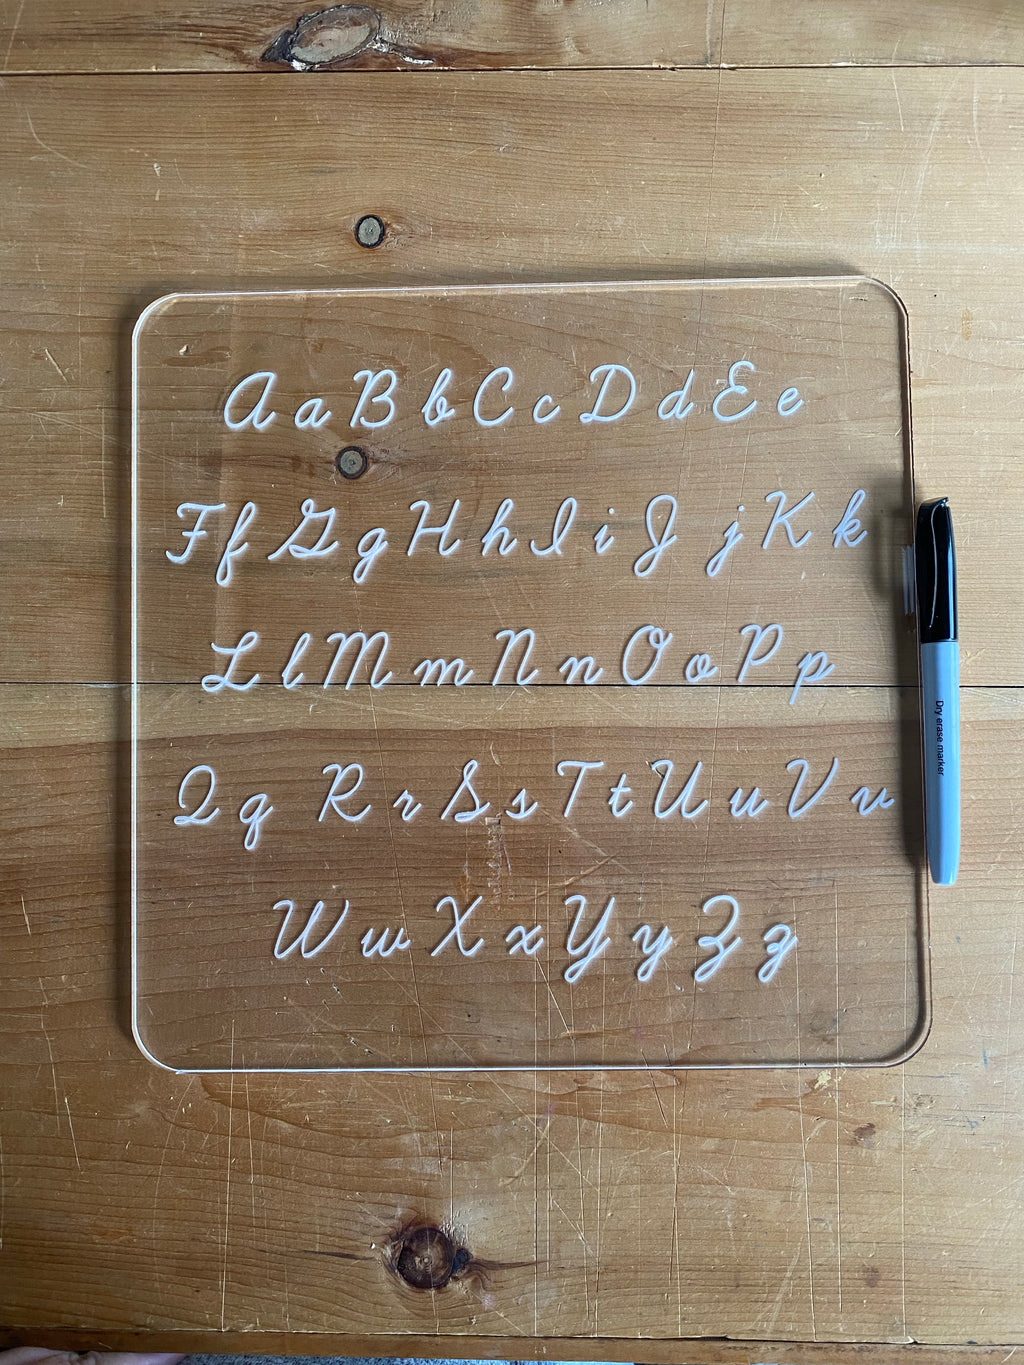 Aa Bb Cc Dd Ee
Ff Gg Hh Ii Jj Kk
Ll Mm Nn Oo Pp
Qq Rr Ss Tt Uu Vv
Ww Xx Yy Zz
Dry erase marker